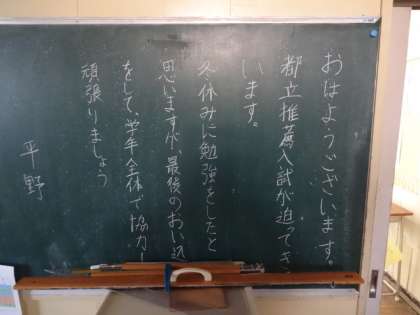 おはようございます。
都立推薦入試が迫ってきて
います。
冬休みに勉強をしたと
思いますが、最後のおい込
をして、学年全体で協力し
頑張りましょう
平野